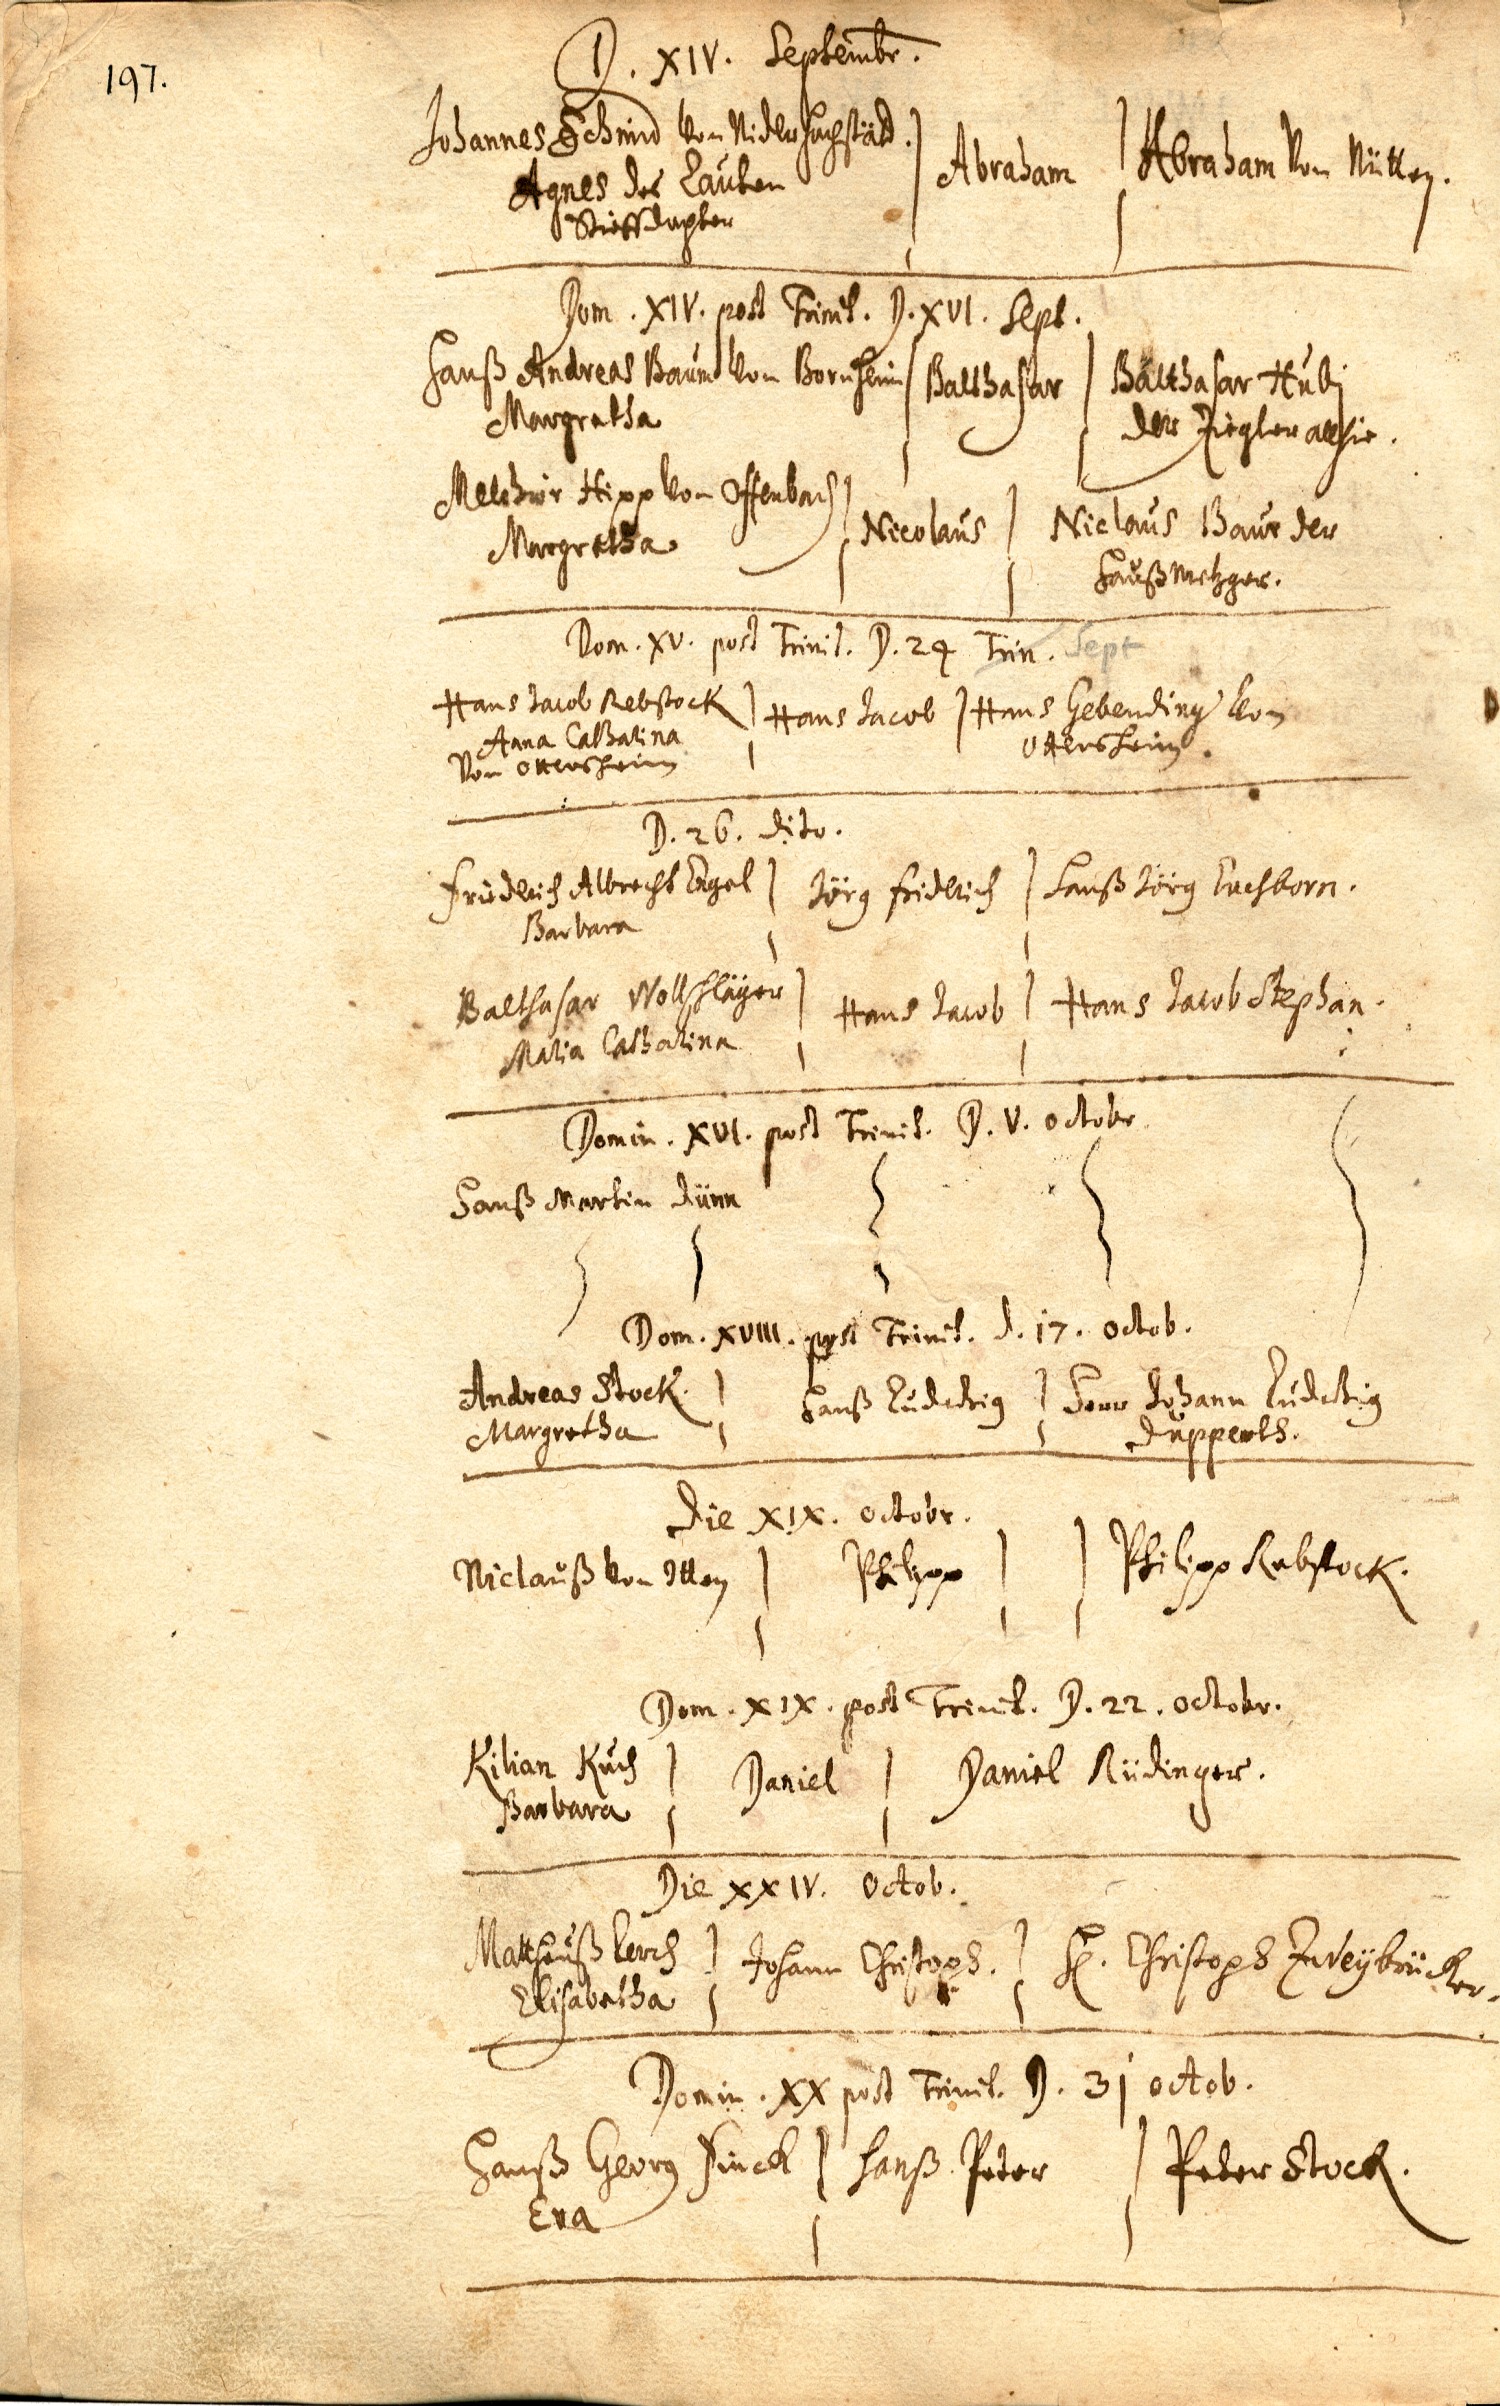 197.
D. XIV. Septembr.
Johannes Schmid von Niderhochstätt. | Abraham | Abraham von Nütten.
Agnes des Lauten
Stieffdochter
Dom. XIV. post Trinit. D. XVI. Sept.
Hanß Andreas Baum von Bornheim | Balthasar | Balthasar Hubi
Margretha
der Ziegler alhie.
Melchior Hipp von Offenbach | Nicolaus | Niclaus Baur der
Margretha
Haußmetzger.
Dom. XV. post Trinit. D. 24 Trin. Sept
Hans Jacob Rebstock | Hans Jacob | Hans Gebending von
Anna Catharina
Ottersheim.
von Ottersheim
D. 26. dito.
Friderich Albrecht Engel | Jörg Fridrich | Hanß Jörg Euchborn.
Barbara
Balthasar Wollschläger | Hans Jacob | Hans Jacob Stephan.
Maria Catharina
Domin. XVI. post Trinit. D. V. Octobr.
Hanß Martin Dünn
Dom. XVIII. post Trinit. d. 17. Octob.
Andreas Stock. | Hanß Ludwig | Herr Johann Ludwig
Margretha
Dupperth.
Die XIX. Octobr.
Niclauß von Itten | Philipp | | Philipp Rebstock.
Dom. XIX. post Trinit. D. 22. Octobr.
Kilian Kuch | Daniel | Daniel Rüdinger.
Barbara
Die XXIV. Octob.
Mattheuß Lerch | Johann Christoph. | H. Christoph Zweybrücker.
Elisabetha
Domin. XX post Trinit. D. 31 Octob.
Hanß Georg Finck | Hanß Peter | Peter Stock.
Eva